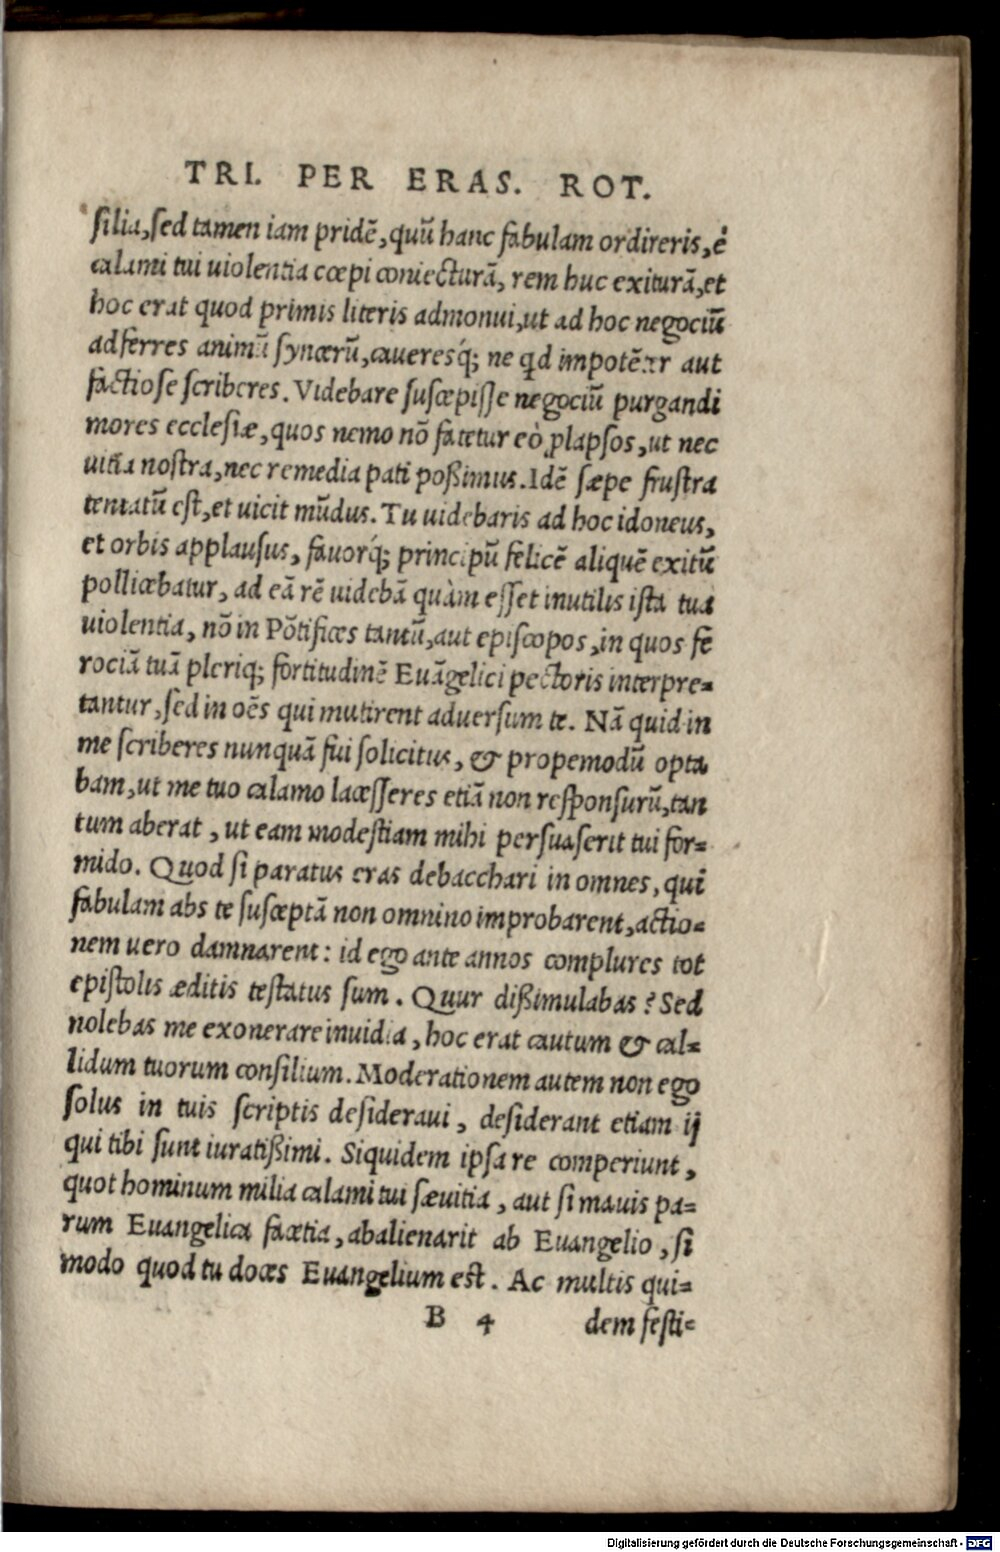 TRI. PER ERAS. ROT.
silia, sed tamen iam pridē, quū hanc fabulam ordireris, è
calami tui uiolentia cœpi coniecturā, rem huc exiturā, et
hoc erat quod primis literis admonui, ut ad hoc negociū
adferres animū syncerū, caueresq́; ne qd impotēter aut
factiose scriberes. Videbare suscepisse negociū purgandi
mores ecclesiæ, quos nemo nō fatetur eò ꝓlapsos, ut nec
uitia nostra, nec remedia pati poßimus. Idē sæpe frustra
tentatū est, et uicit mūdus. Tu uidebaris ad hoc idoneus,
et orbis applausus, fauorq́; principū felicē aliquē exitū
pollicebatur, ad eā rē uidebā quàm esset inutilis ista tua
uiolentia, nō in Pōtifices tantū, aut episcopos, in quos fe
rociā tuā pleriq; fortitudinē Euāgelici pectoris interpre=
tantur, sed in oēs qui mutirent aduersum te. Nā quid in
me scriberes nunquā fui solicitus, & propemodū opta
bam, ut me tuo calamo lacesseres etiā non responsurū, tan
tum aberat, ut eam modestiam mihi persuaserit tui for=
mido. Quod si paratus eras debacchari in omnes, qui
fabulam abs te susceptā non omnino improbarent, actio=
nem uero damnarent: id ego ante annos complures tot
epistolis æditis testatus sum. Quur dißimulabas? Sed
nolebas me exonerare inuidia, hoc erat cautum & cal=
lidum tuorum consilium. Moderationem autem non ego
solus in tuis scriptis desideraui, desiderant etiam ij
qui tibi sunt iuratißimi. Siquidem ipsa re comperiunt,
quot hominum milia calami tui sæuitia, aut si mauis pa=
rum Euangelica facetia, abalienarit ab Euangelio, si
modo quod tu doces Euangelium est. Ac multis qui=
B 4 dem festi=
Digitalisierung gefördert durch die Deutsche Forschungsgemeinschaft - DFG